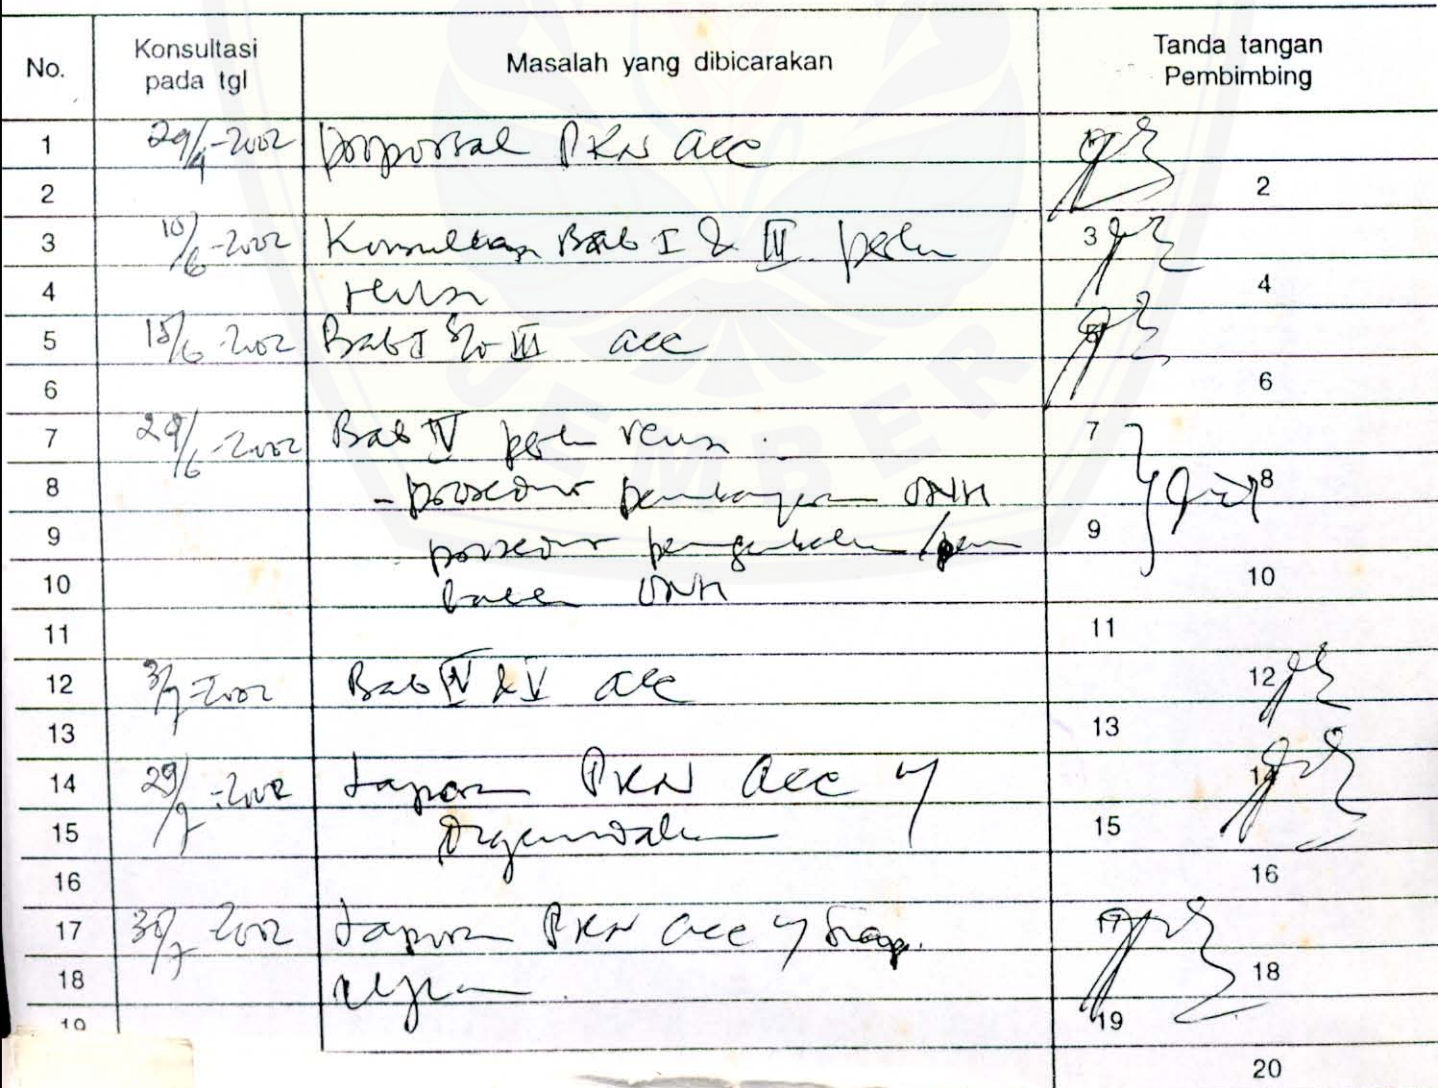 No. Konsultasi pada tgl Masalah yang dibicarakan Tanda tangan Pembimbing
1 29/4-2002 proposal PKN acc
2 2
3 10/6-2002 Konsultasi Bab I & III perlu 3
4 revisi 4
5 15/6-2002 Bab I s/d III acc 5
6 6
7 29/6-2002 Bab IV perlu revisi. 7
8 - prosedur pembayaran ONH 8
9 prosedur / 9
10 ONH 10
11 11
12 3/7-2002 Bab IV & V acc 12
13 13
14 29/7-2002 Laporan PKN acc 14
15 15
16 16
17 30/7 2002 Laporan PKN acc siap 17
18 ujian 18
19 19
20
JEMBER